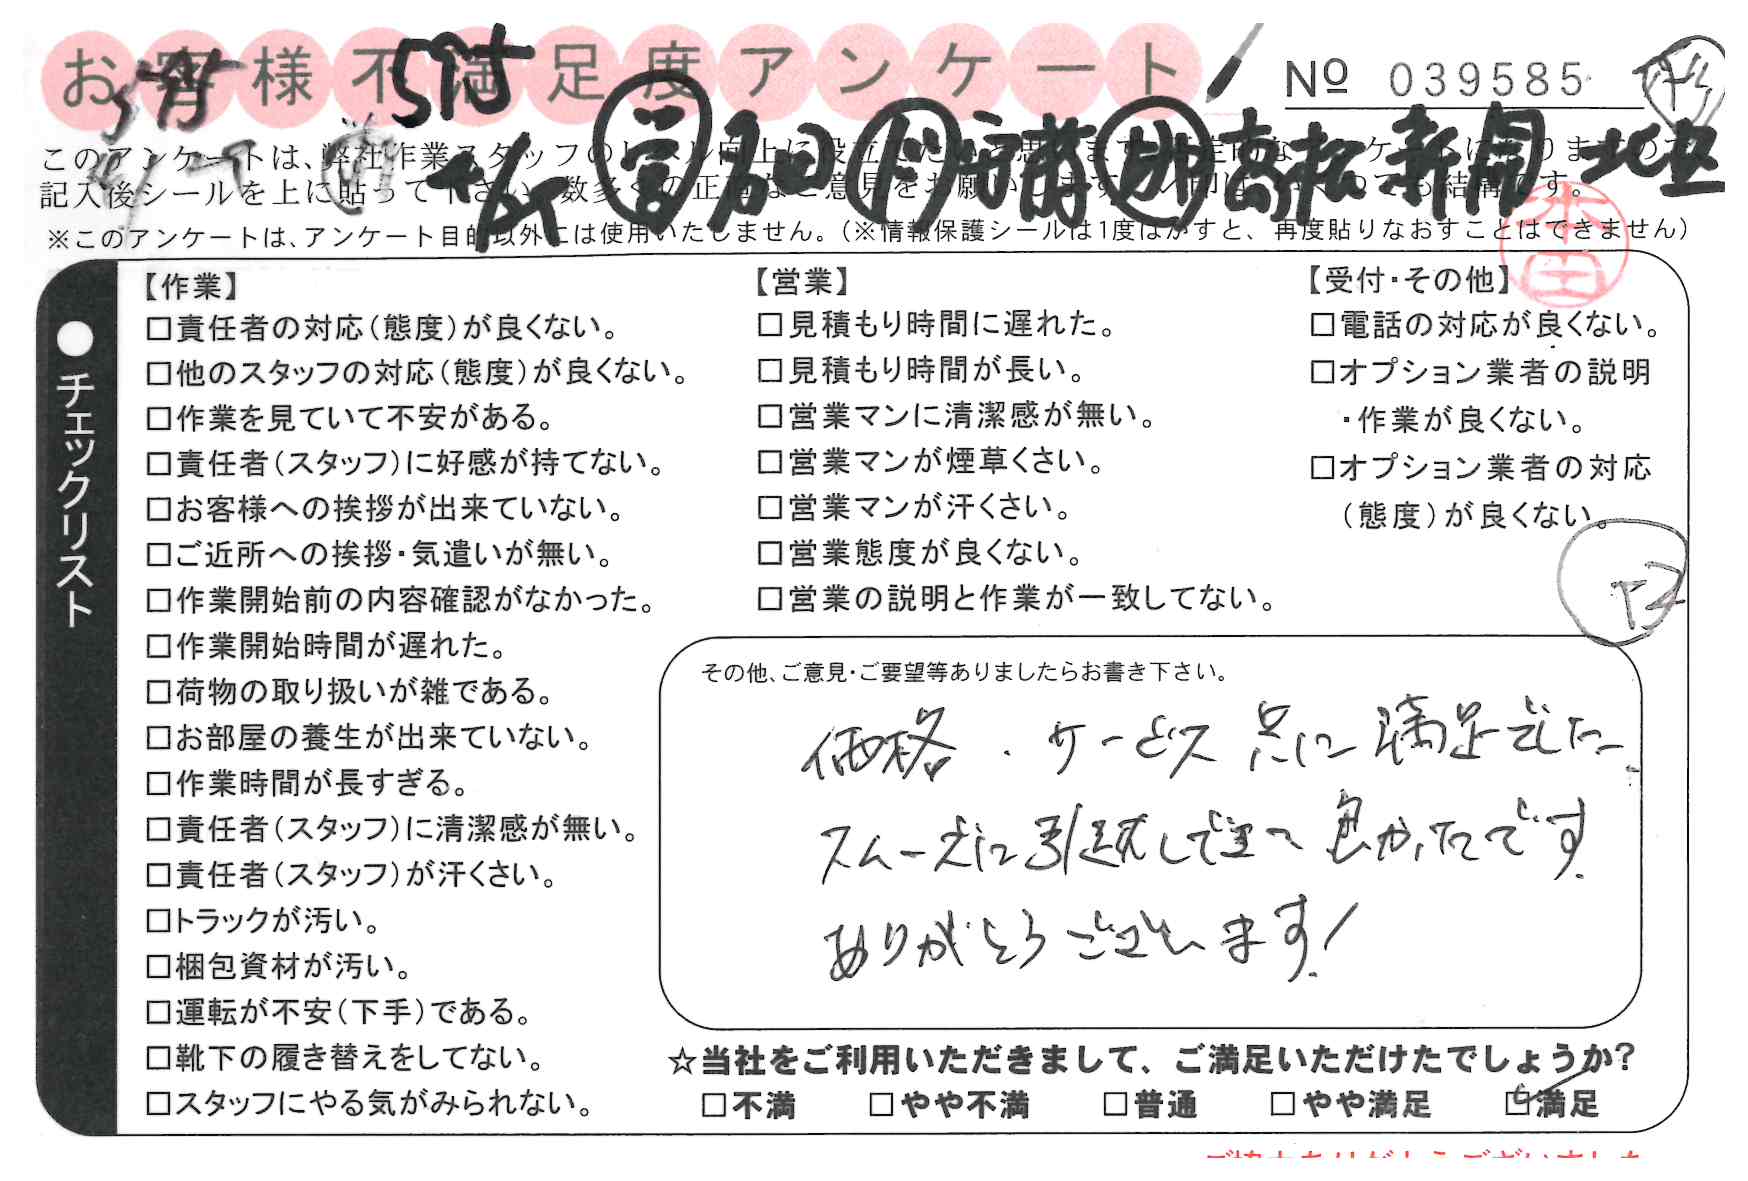 お客様不満足度アンケート
№ 039585
このアンケートは、弊社作業スタッフの
記入後シールを上に貼って下さい。数多くの正直なご意見をお願いします。
※このアンケートは、アンケート目的以外には使用いたしません。(※情報保護シールは1度はがすと、再度貼りなおすことはできません)
本田
チェックリスト
【作業】
□責任者の対応(態度)が良くない。
□他のスタッフの対応(態度)が良くない。
□作業を見ていて不安がある。
□責任者(スタッフ)に好感が持てない。
□お客様への挨拶が出来ていない。
□ご近所への挨拶・気遣いが無い。
□作業開始前の内容確認がなかった。
□作業開始時間が遅れた。
□荷物の取り扱いが雑である。
□お部屋の養生が出来ていない。
□作業時間が長すぎる。
□責任者(スタッフ)に清潔感が無い。
□責任者(スタッフ)が汗くさい。
□トラックが汚い。
□梱包資材が汚い。
□運転が不安(下手)である。
□靴下の履き替えをしてない。
□スタッフにやる気がみられない。
【営業】
□見積もり時間に遅れた。
□見積もり時間が長い。
□営業マンに清潔感が無い。
□営業マンが煙草くさい。
□営業マンが汗くさい。
□営業態度が良くない。
□営業の説明と作業が一致してない。
【受付・その他】
□電話の対応が良くない。
□オプション業者の説明
・作業が良くない。
□オプション業者の対応
(態度)が良くない。
その他、ご意見・ご要望等ありましたらお書き下さい。
価格・サービス 点に満足でした。
スムーズに引越しできて良かったです。
ありがとうございます!
☆当社をご利用いただきまして、ご満足いただけたでしょうか?
□不満 □やや不満 □普通 □やや満足 ☑満足
ご協力ありがとうございました